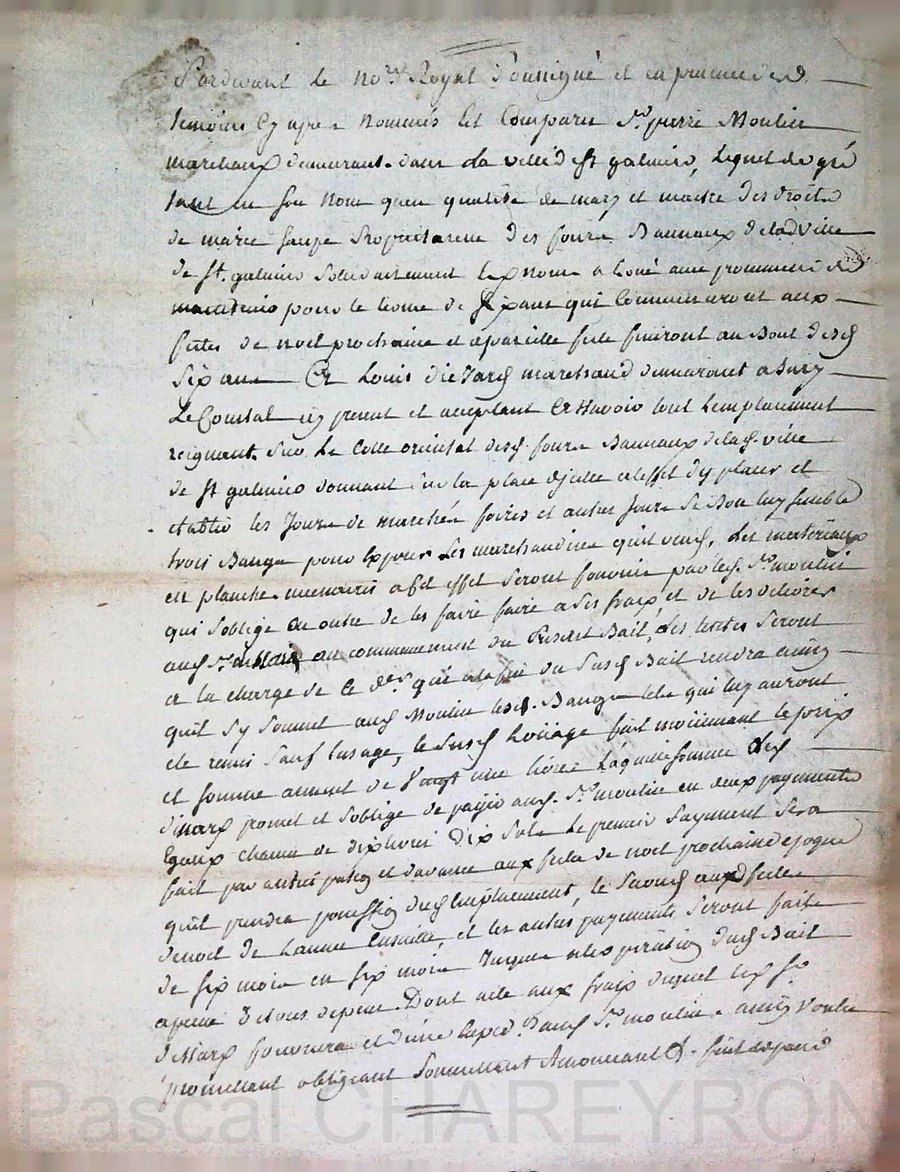 Pardevant le no.re Royal soussigné et en presence des
temoins cy apres nommés est comparu S.r pierre Moulin
marchand demeurant dans la ville de St galmier, lequel de gré
tant en son nom qu'en qualité de mary et maitre des droits
de marie proprietaire des fours Bannaux de lad ville
de St galmier solidairement a loué avec promesse de
pour le terme de six ans qui commenceront aux
fetes de noel prochaine et a pareille fete finiront au Bout desd
six ans Louis marchand demeurant a Sury
Le Comtal icy present et acceptant tout l'emplacement
reignant sur le Cotté oriental desd fours Bannaux de lad ville
de St galmier donnant sur la place a l'effet d'y placer et
etablir les Jours de marchés foires et autres Jours si Bon luy semble
trois Bangs pour exposer les marchandises qu'il vend, les materiaux
en planche necessaires a cet effet seront fournis par led S.r moulin
qui s'oblige en outre de les faire faire a ses fraix, et de les delivrer
aud S.r au commencement du present Bail, les seront
a la charge de ce d.er qui a la fin du susd Bail rendra ainsy
qu'il s'y soumet aud Moulin lesd. Bangs tels qui luy auront
ete remis sauf l'usage, le susd Loüage fait moiennant le prix
et somme annuel de vingt une livres Laquelle somme led
promet et s'oblige de payer aud S.r moulin en deux payements
Egaux chacun de dix livres dix sols Le premier payement sera
fait par anticipation et d'avance aux fetes de noel prochaine epoque
qu'il prendra possession dud Emplacement, le second aux fetes
de noel de l'année ensuitte, et les autres payements seront faits
de six mois en six mois Jusques a l'expiration dud Bail
a peine de tous depens. Dont acte aux fraix duquel led S.r
fournira et d'une exped. aud S.r moulin ainsy voulu
promettant obligeant soumettant Renonçant &. fait et passé
Pascal CHAREYRON